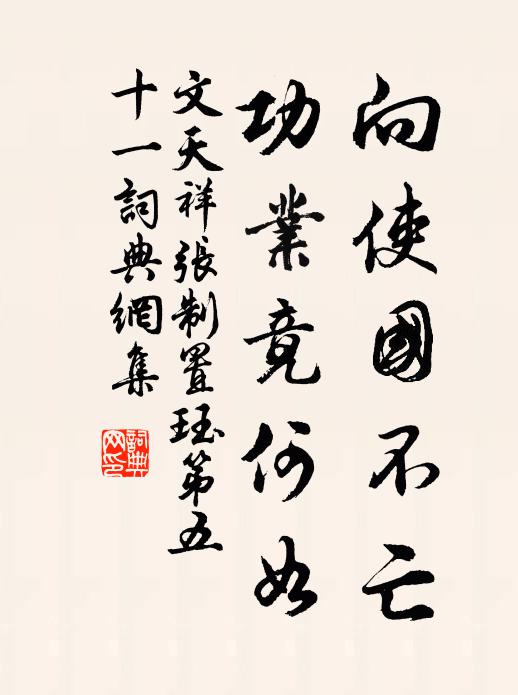 向使國不亡
功業竟何如
文天祥張制置珏第五
十一詞典網集
詞典
网印